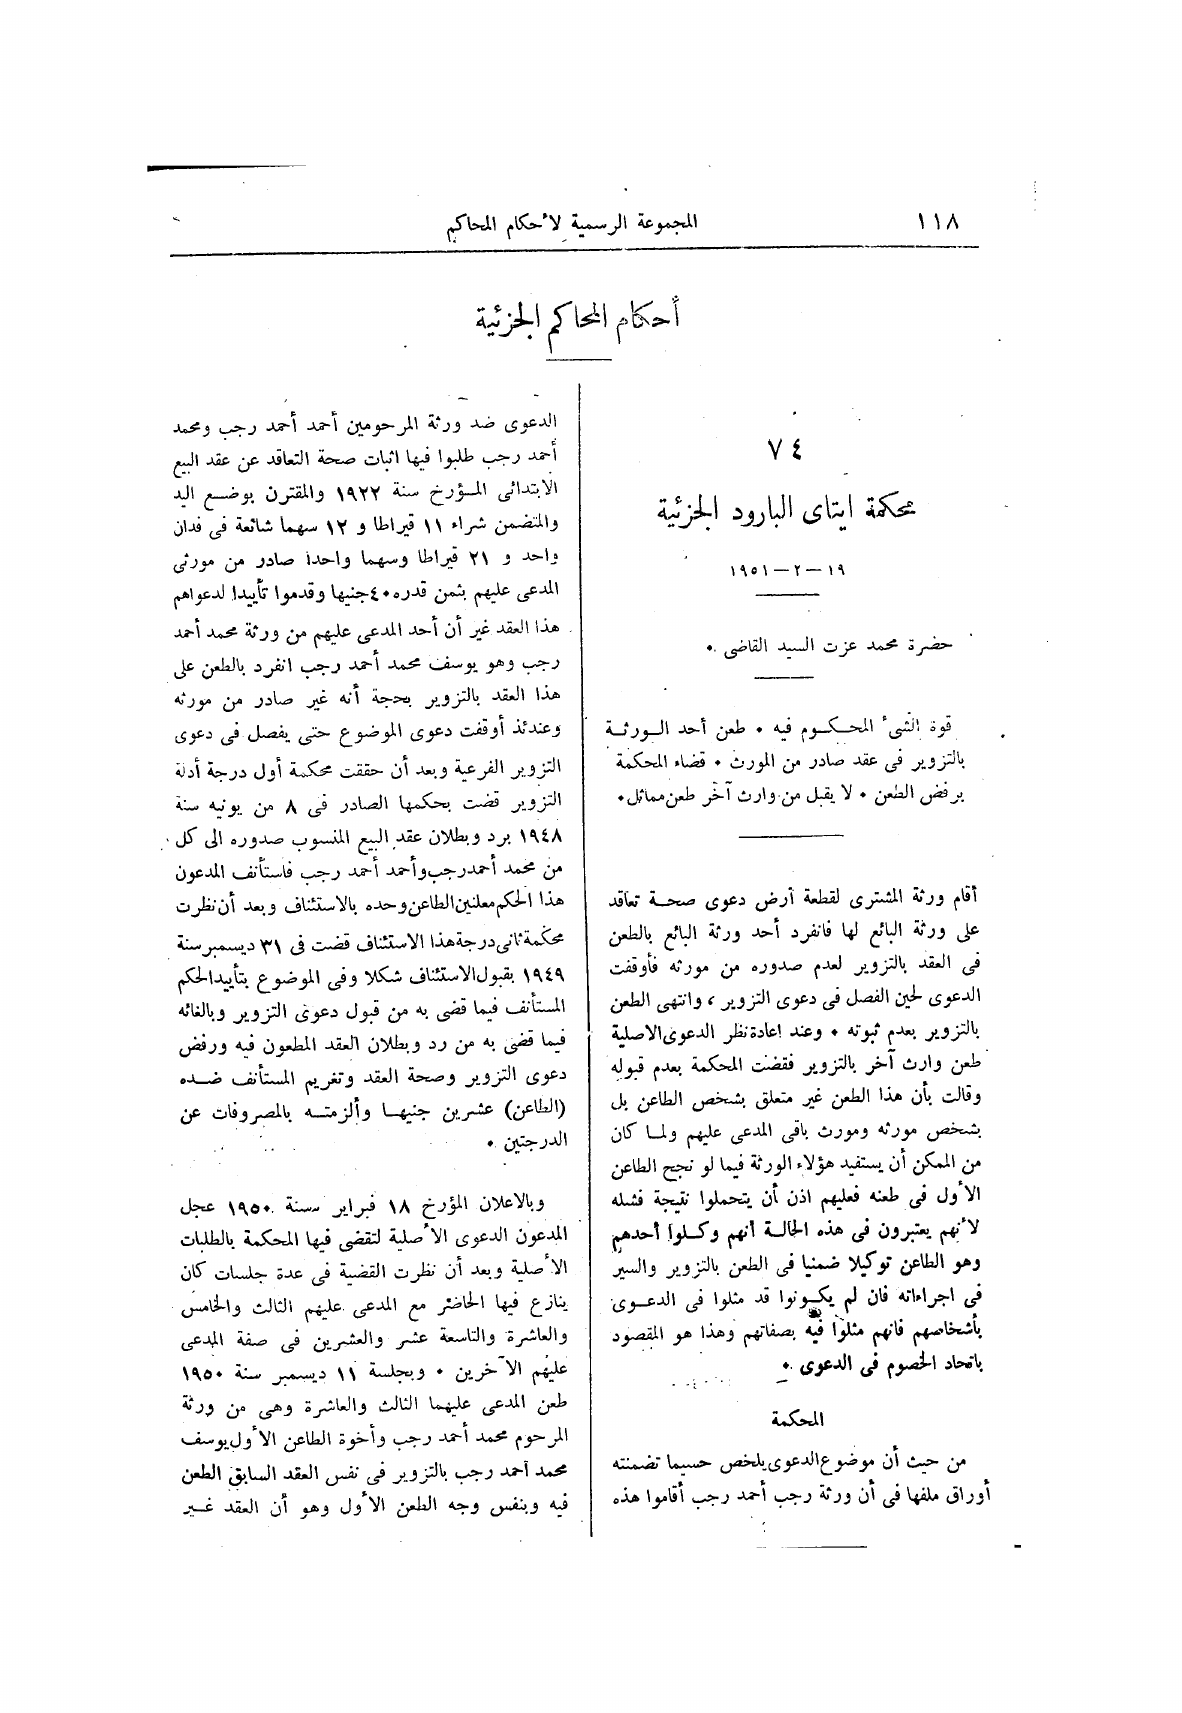 ١١٨
المجموعة الرسمية لأحكام المحاكم
أحكام المحاكم الجزئية
٧٤
محكمة ايتاى البارود الجزئية
١٩ – ٢ – ١٩٥١
حضرة محمد عزت السيد القاضى .
قوة الشىء المحكوم فيه . طعن أحد الورثة
بالتزوير فى عقد صادر من المورث . قضاء المحكمة
برفض الطعن . لا يقبل من وارث آخر طعن مماثل .
أقام ورثة المشترى لقطعة أرض دعوى صحة تعاقد
على ورثة البائع لها فانفرد أحد ورثة البائع بالطعن
فى العقد بالتزوير لعدم صدوره من مورثه فأوقفت
الدعوى لحين الفصل فى دعوى التزوير ، وانتهى الطعن
بالتزوير بعدم ثبوته . وعند اعادة نظر الدعوى الاصلية
طعن وارث آخر بالتزوير فقضت المحكمة بعدم قبوله
وقالت بأن هذا الطعن غير متعلق بشخص الطاعن بل
بشخص مورثه ومورث باقى المدعى عليهم ولما كان
من الممكن أن يستفيد هؤلاء الورثة فيما لو نجح الطاعن
الأول فى طعنه فعليهم اذن أن يتحملوا نتيجة فشله
لأنهم يعتبرون فى هذه الحالة أنهم وكلوا أحدهم
وهو الطاعن توكيلا ضمنيا فى الطعن بالتزوير والسير
فى اجراءاته فان لم يكونوا قد مثلوا فى الدعوى
بأشخاصهم فانهم مثلوا فيه بصفاتهم وهذا هو المقصود
باتحاد الخصوم فى الدعوى .
المحكمة
من حيث أن موضوع الدعوى يلخص حسبما تضمنته
أوراق ملفها فى أن ورثة رجب أحمد رجب أقاموا هذه
الدعوى ضد ورثة المرحومين أحمد أحمد رجب ومحمد
أحمد رجب طلبوا فيها اثبات صحة التعاقد عن عقد البيع
الابتدائى المؤرخ سنة ١٩٢٢ والمقترن بوضع اليد
والمتضمن شراء ١١ قيراطا و ١٢ سهما شائعة فى فدان
واحد و ٢١ قيراطا وسهما واحدا صادر من مورثى
المدعى عليهم بثمن قدره ٤٠ جنيها وقدموا تأييدا لدعواهم
هذا العقد غير أن أحد المدعى عليهم من ورثة محمد أحمد
رجب وهو يوسف محمد أحمد رجب انفرد بالطعن على
هذا العقد بالتزوير بحجة أنه غير صادر من مورثه
وعندئذ أوقفت دعوى الموضوع حتى يفصل فى دعوى
التزوير الفرعية وبعد أن حققت محكمة أول درجة أدلة
التزوير قضت بحكمها الصادر فى ٨ من يونيه سنة
١٩٤٨ برد وبطلان عقد البيع المنسوب صدوره الى كل
من محمد أحمد رجب وأحمد أحمد رجب فاستأنف المدعون
هذا الحكم معلنين الطاعن وحده بالاستئناف وبعد أن نظرت
محكمة ثانى درجة هذا الاستئناف قضت فى ٣١ ديسمبر سنة
١٩٤٩ بقبول الاستئناف شكلا وفى الموضوع بتأييد الحكم
المستأنف فيما قضى به من قبول دعوى التزوير وبالغائه
فيما قضى به من رد وبطلان العقد المطعون فيه ورفض
دعوى التزوير وصحة العقد وتغريم المستأنف ضده
(الطاعن) عشرين جنيها وألزمته بالمصروفات عن
الدرجتين .
وبالاعلان المؤرخ ١٨ فبراير سنة ١٩٥٠ عجل
المدعون الدعوى الأصلية لتقضى فيها المحكمة بالطلبات
الأصلية وبعد أن نظرت القضية فى عدة جلسات كان
ينازع فيها الحاضر مع المدعى عليهم الثالث والخامس
والعاشرة والتاسعة عشر والعشرين فى صفة المدعى
عليهم الآخرين . وبجلسة ١١ ديسمبر سنة ١٩٥٠
طعن المدعى عليهما الثالث والعاشرة وهى من ورثة
المرحوم محمد أحمد رجب وأخوة الطاعن الأول يوسف
محمد أحمد رجب بالتزوير فى نفس العقد السابق الطعن
فيه وبنفس وجه الطعن الأول وهو أن العقد غير